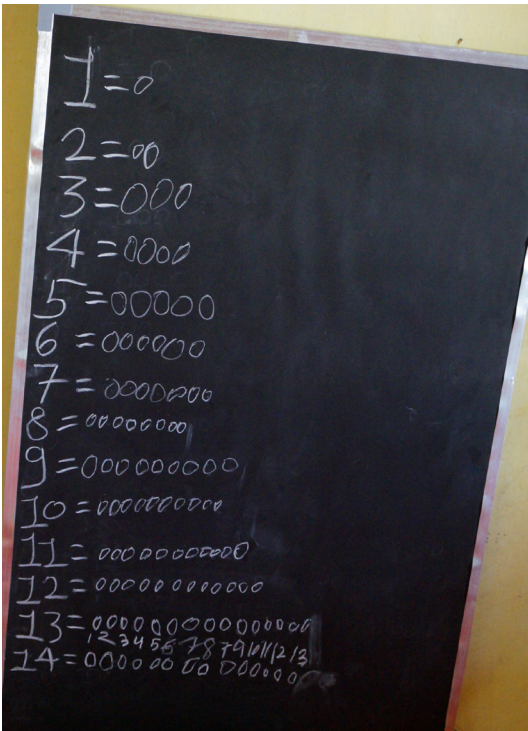 1=0
2=00
3=000
4=0000
5=00000
6=000000
7=0000000
8=00000000
9=000000000
10=0000000000
11=00000000000
12=000000000000
13=0000000000000
1 2 3 4 5 6 7 8 9 10 11 12 13
14=00000000000000